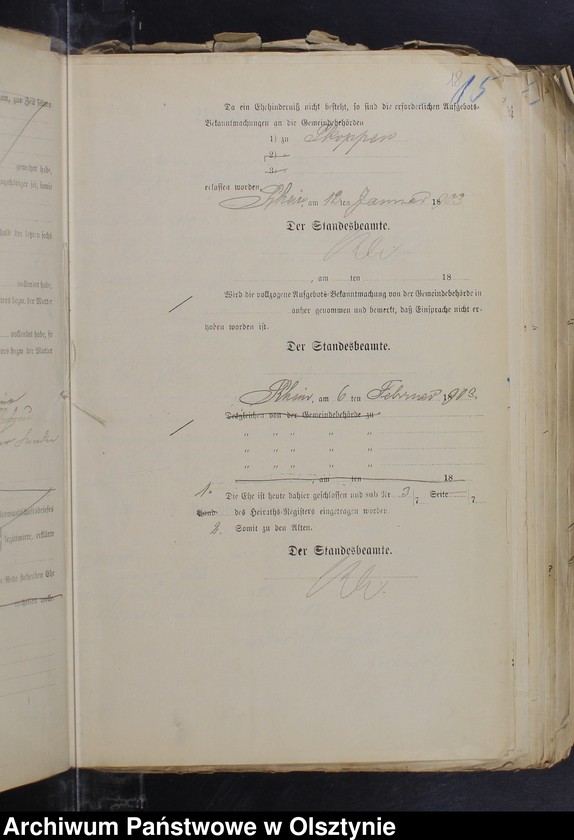 15
Da ein Ehehinderniß nicht besteht, so sind die erforderlichen Aufgebots-
Bekanntmachungen an die Gemeindebehörden
1) zu Skoppen
2)
3)
erlassen worden.
Rhein, am 12 ten Januar 1903
Der Standesbeamte.
, am ten 18
Wird die vollzogene Aufgebots-Bekanntmachung von der Gemeindebehörde in
anher genommen und bemerkt, daß Einsprache nicht er-
hoben worden ist.
Der Standesbeamte.
Rhein, am 6 ten Februar 1903.
Desgleichen von der Gemeindebehörde zu
" " " " "
" " " " "
" " " " "
, am ten 18
1. Die Ehe ist heute dahier geschlossen und sub Nr. 3/7 Seite 7
Band des Heiraths-Registers eingetragen worden
2. Somit zu den Akten.
Der Standesbeamte.
Archiwum Państwowe w Olsztynie